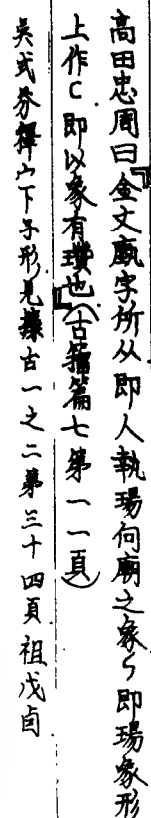 高田忠周曰『金文𤔲字所从即人執瑒何廟之象㇉即瑒象形
上作C即以象有瓚也』(古籀篇七第一一頁)
吳式芬釋宀下子形見攈古一之二第三十四頁祖戊卣